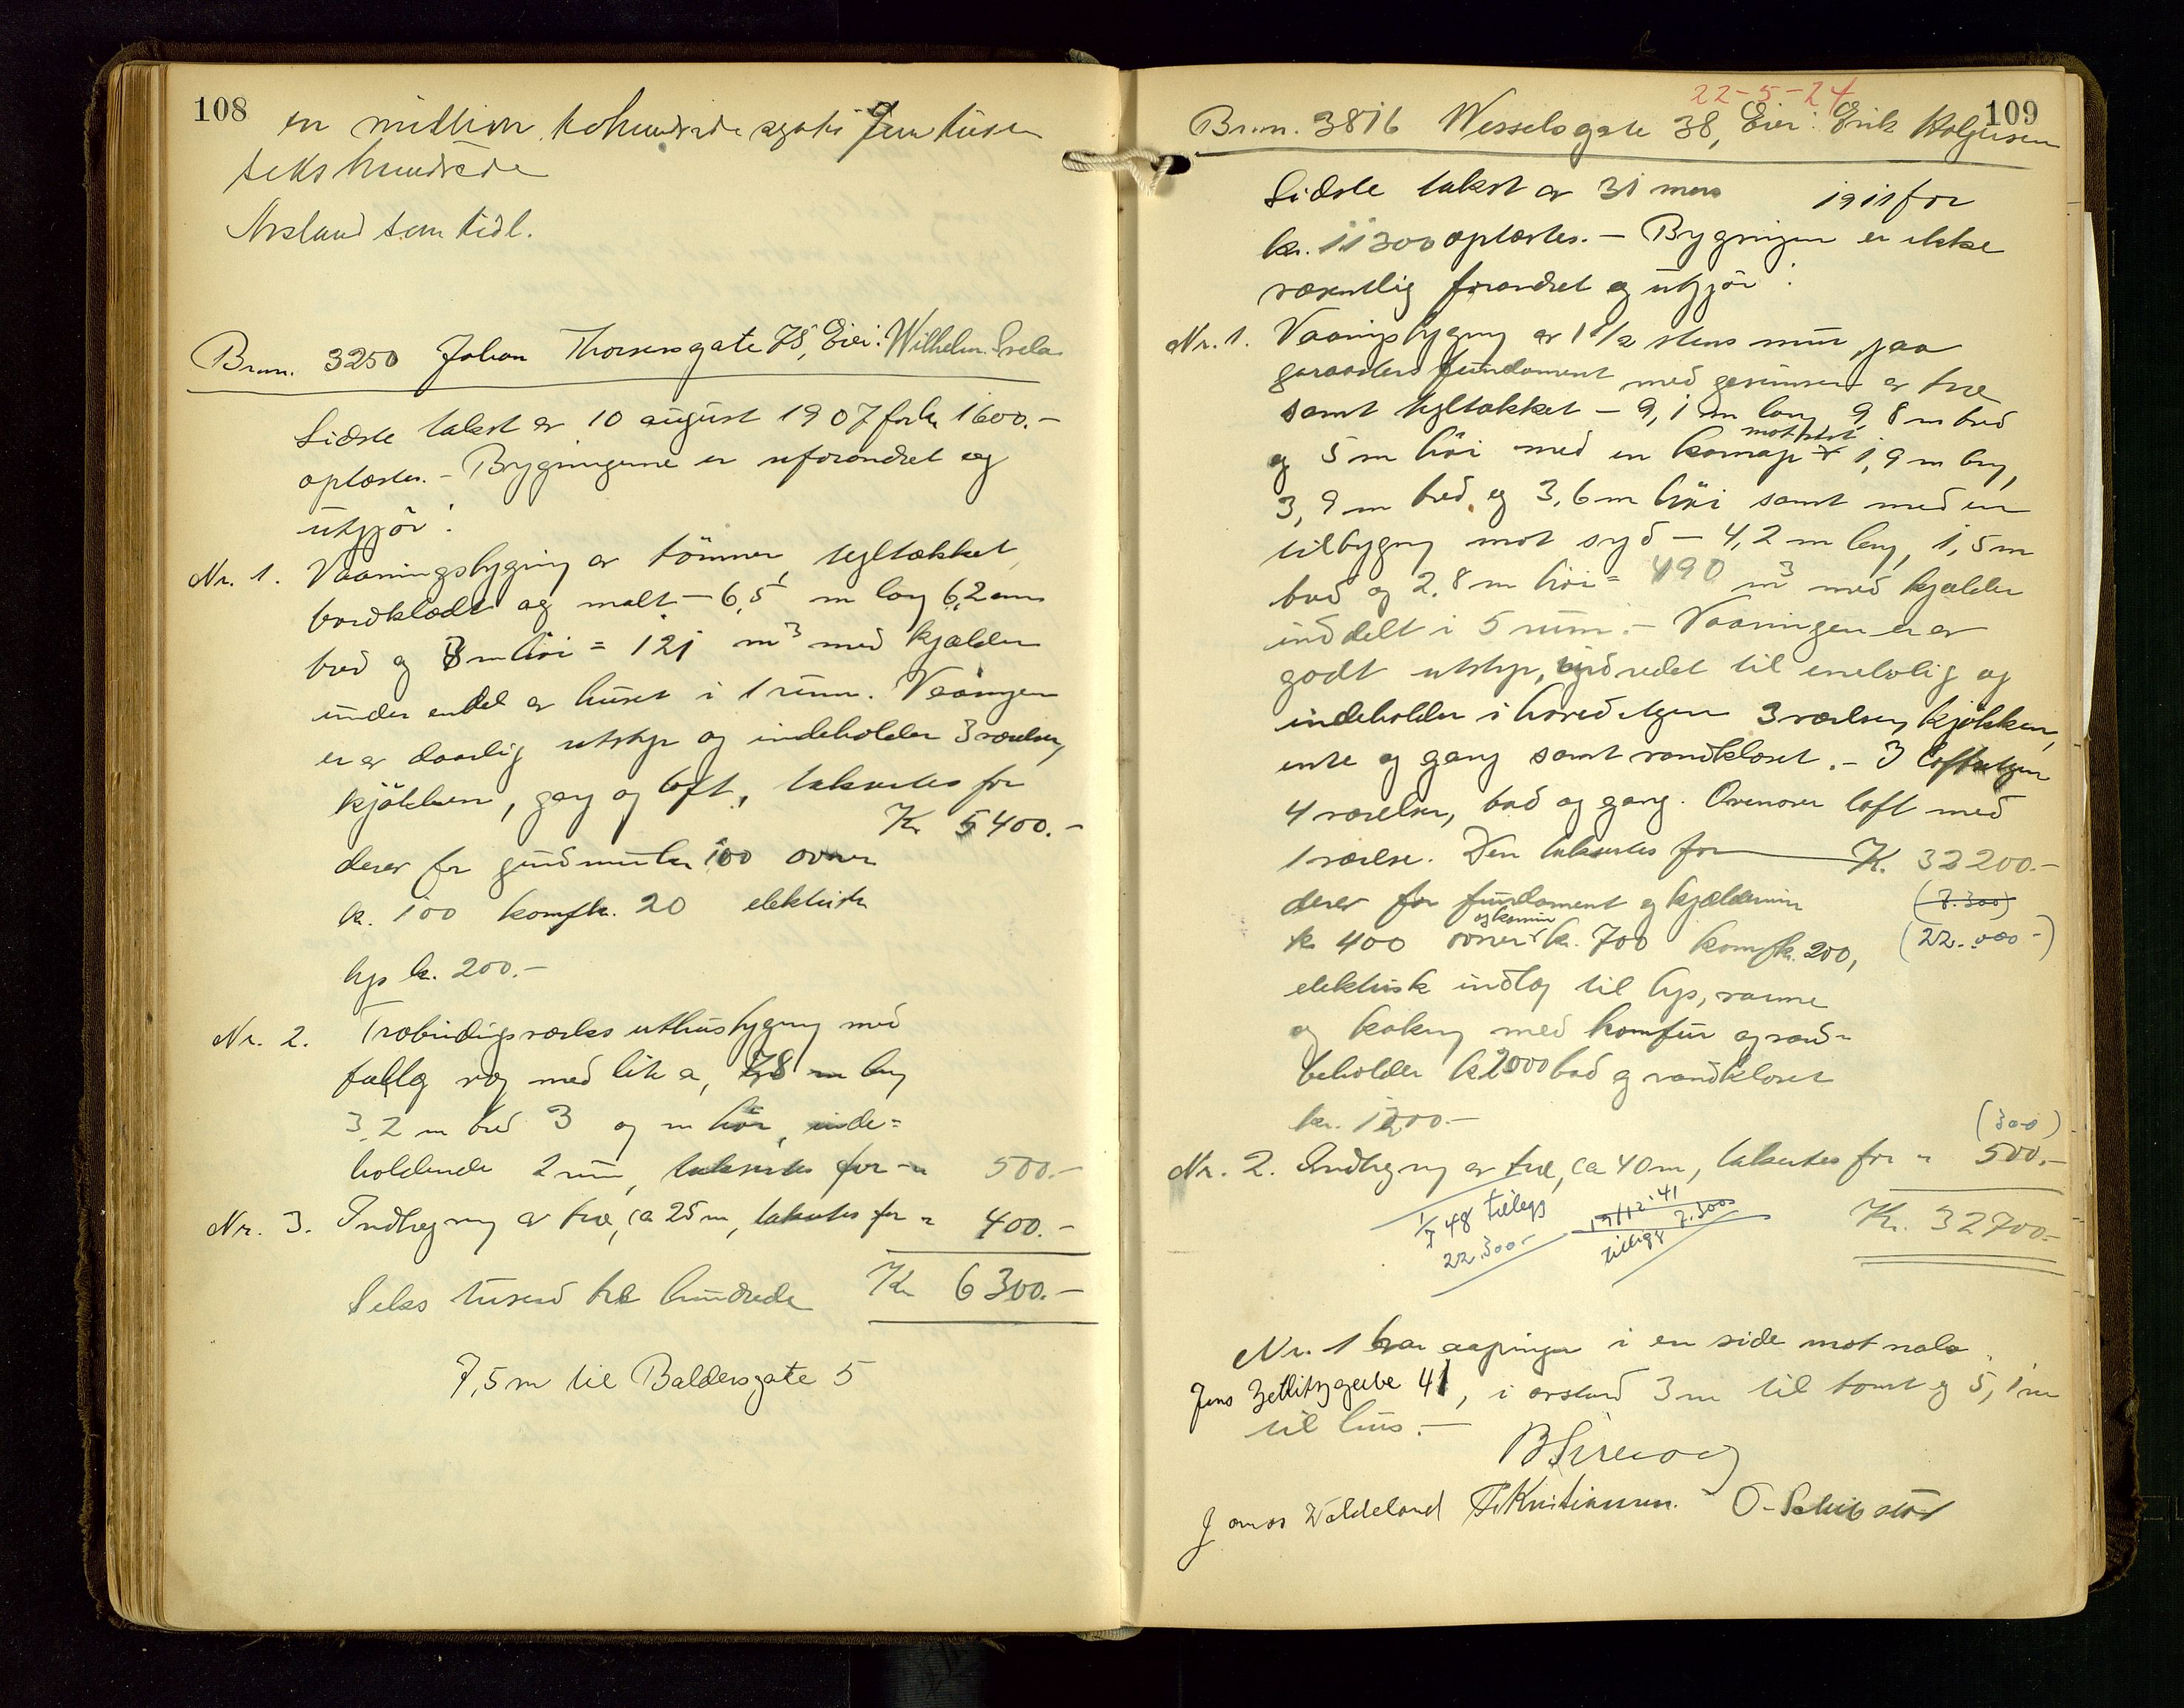 108
en million tohundrede og otti fem tusen
sekshundrede
Avstand som tidl.
Brnn. 3250 Johan Thorsensgate 78, Eier: Wilhelm
Sidste takst av 10 august 1907 for kr 1600.-
oplæstes. - Bygningerne er uforandret og
utgjör:
Nr. 1. Vaaningsbygning av tömmer, tegltækket,
bordklædt og malt - 6,5 m lang 6,2 m
bred og 3 m höi = 121 m3 med kjælder
under endel av huset i 1 rum. Vaaningen
er av daarlig utstyr og indeholder 3 værelser,
kjökken, gang og loft, taksertes for
Kr 5400.-
derav for grundmur kr 100 ovner
kr. 100 komf kr. 20 elektrisk
lys kr. 200.-
Nr. 2. Træbindingsverks uthusbygning med
m lang
3,2 m bred 3 og m höi, inde=
holdende 2 rum, taksertes for " 500.-
Nr. 3. Indhegning av træ, ca 25 m, taksertes for " 400.-
Seks tusend tre hundrede Kr 6300.-
7,5 m til Baldersgate 5
22-5-24
109
Brnn. 3816 Wesselsgate 38, Eier: Erik Holgersen
Sidste takst av 31 mars 1911 for
kr. 11300 oplæstes. - Bygningen er ikke
væsentlig forandret og utgjör:
Nr. 1. Vaaningsbygning av 1 1/2 stens mur paa
graastens fundament med gesimser av træ
samt tegltækket - 9,1 m lang 9,8 m bred
mot vest
og 5 m höi med en karnap 1,9 m lang,
3,9 m bred og 3,6 m höi samt med en
tilbygning mot syd - 4,2 m lang, 1,5 m
bred og 2,8 m höi = 490 m3 med kjælder
inddelt i 5 rum. - Vaaningen er av
godt utstyr, indredet til enebolig og
indeholder i hovedetagen 3 værelser, kjökken,
entre og gang samt vandkloset. - I loftsetagen
4 værelser, bad og gang. Ovenover loft med
1 værelse. Den taksertes for K. 32200.-
derav for fundament og kjældermur (7.300)
og kamin
kr 400 ovner kr. 700 komf kr. 200, (22.000-)
elektrisk indlæg til lys, varme
og kokning med komfur og vand-
beholder kr 2000 bad og vandkloset
kr. 1200.-
(300)
Nr. 2. Indhegning av træ, ca 40 m, taksertes for " 500.-
1/7 48 tillegg 22.300-
19/12-41 tillegg 7.300
Kr. 32700.-
Nr. 1 har aapninger i en side mot nabo
Jens Zetlitzgate 41, i avstand 3 m til tomt og 5,1 m
til hus. -
Jonas Valdeland Kristiansen. O. Schibsted